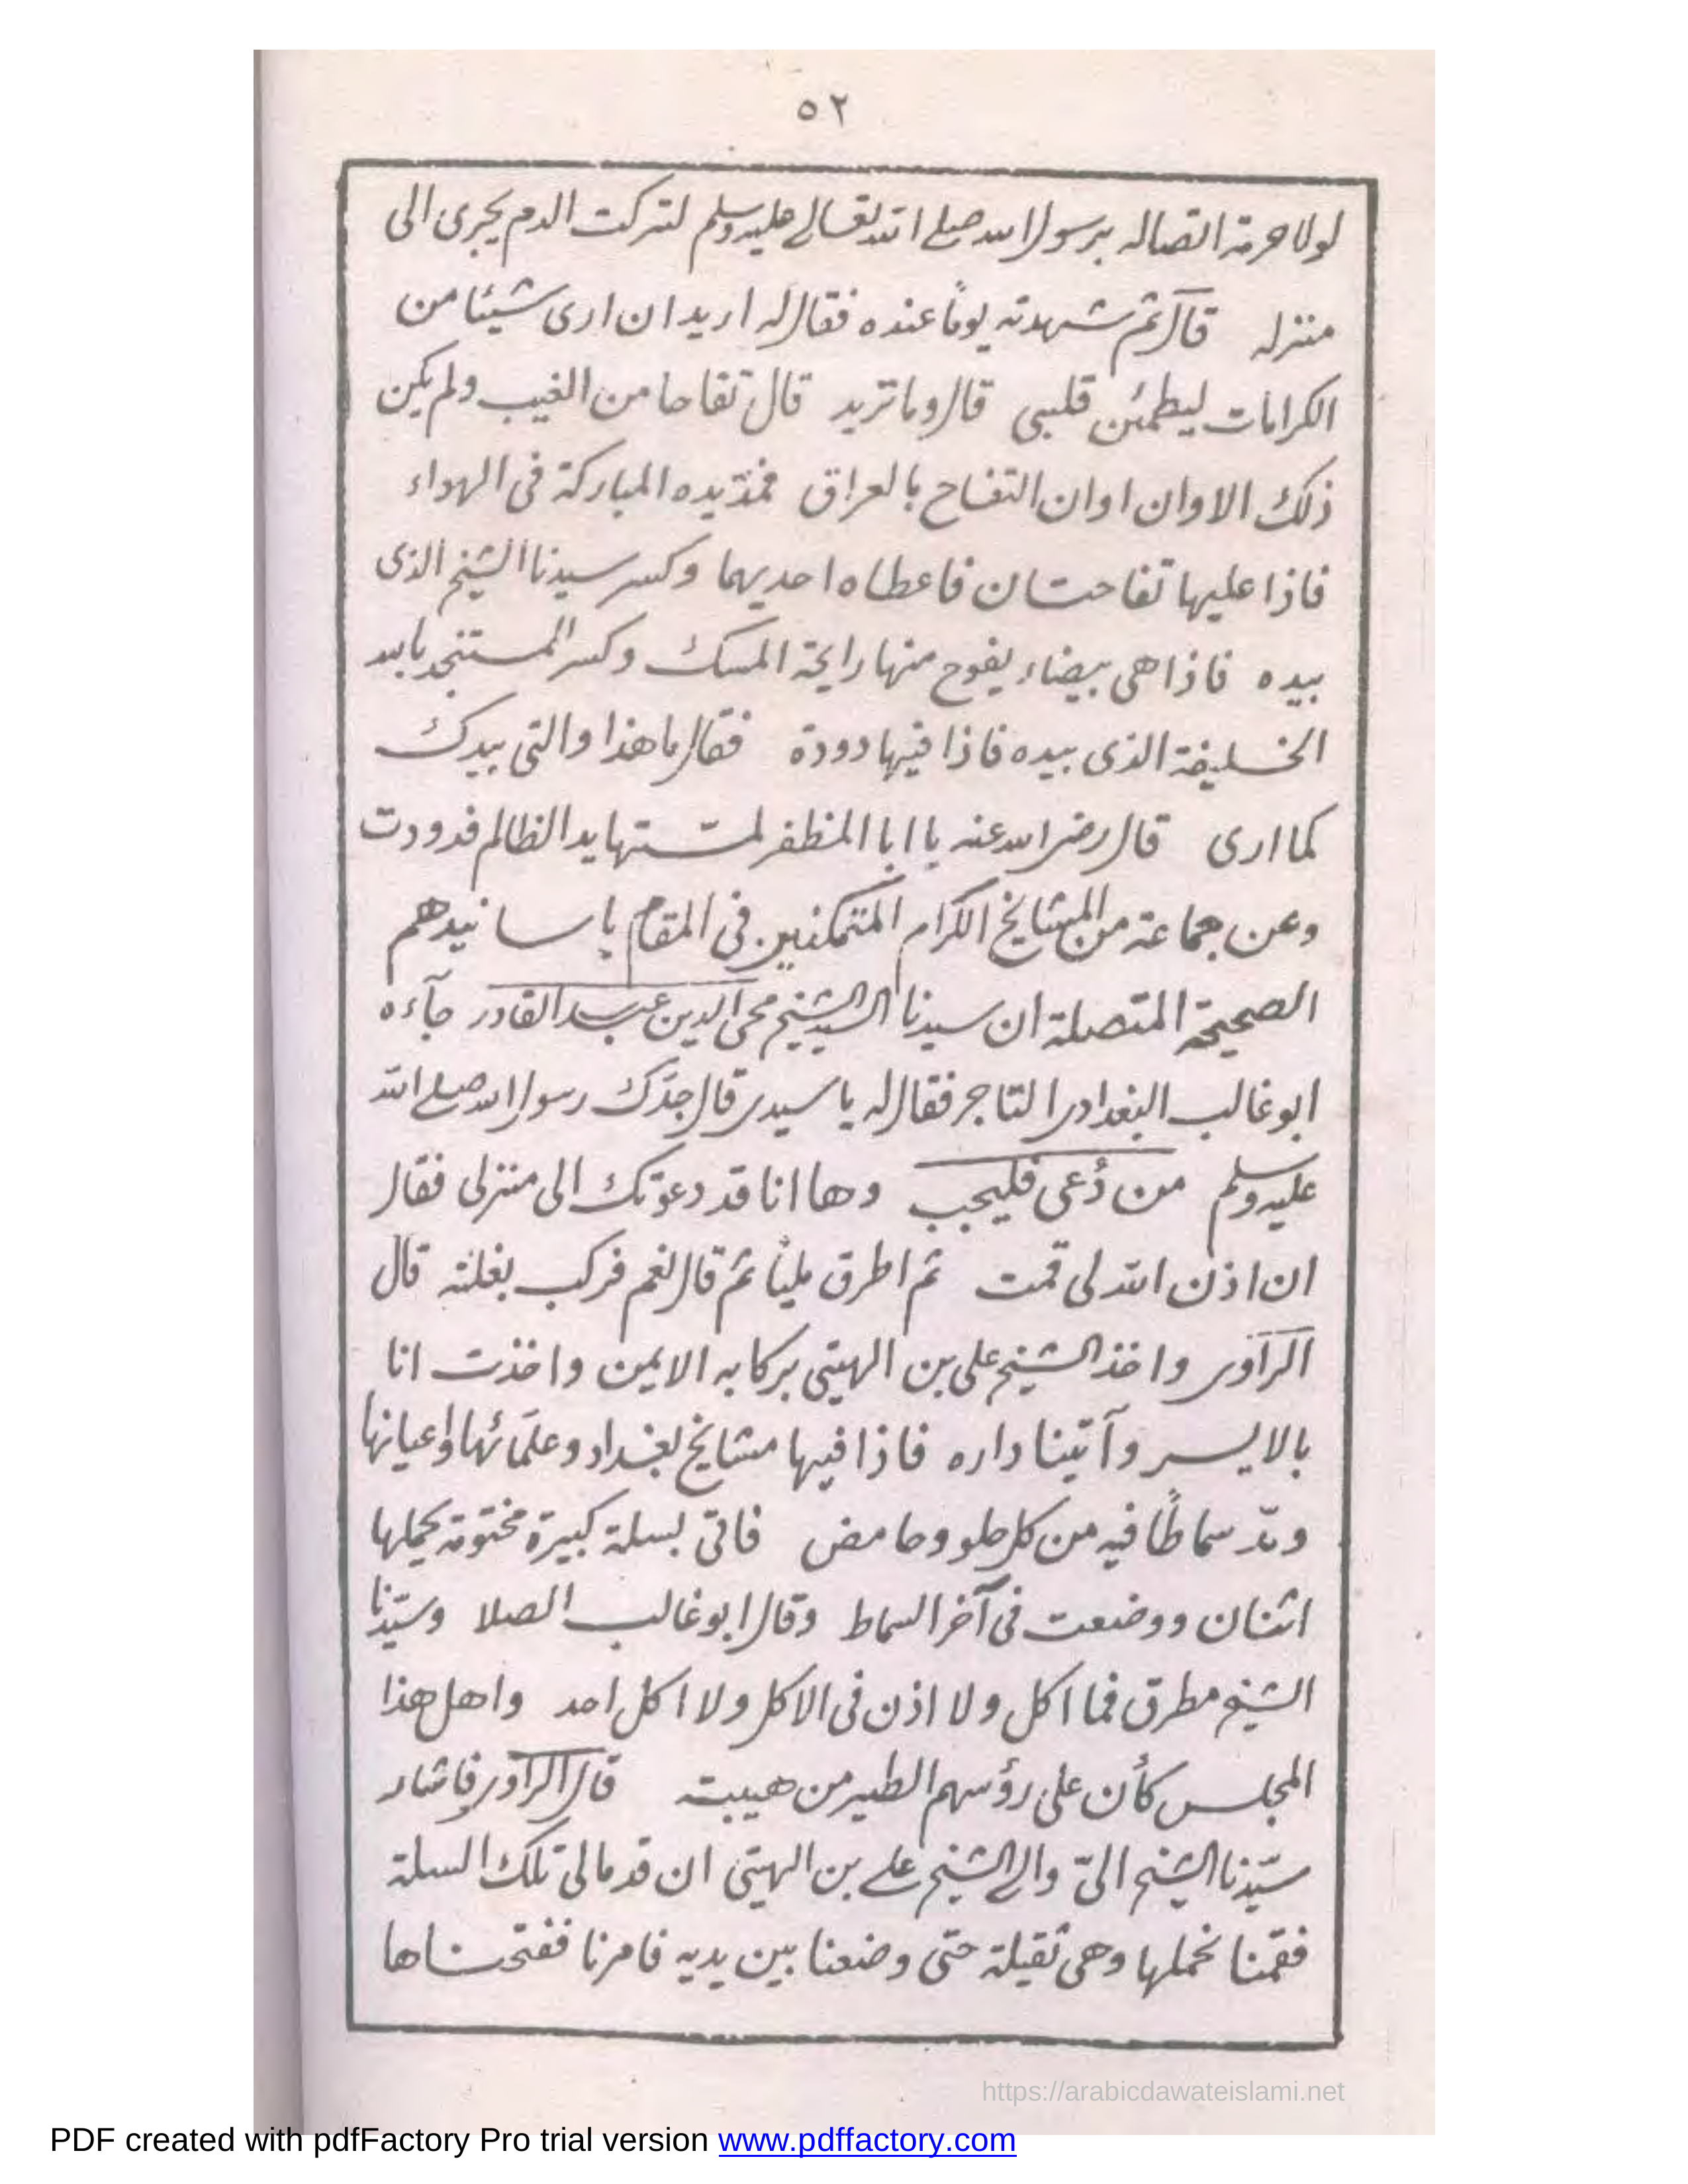 ٥٢
لولا حرمة اتصاله برسول الله صلے اللہ تعالے علیہ وسلم لتركت الدم يجرى الى
منزله قال ثم شهدته يوماً عنده فقال له اريد ان ارى شيئا من
الكرامات ليطمئن قلبى قال وما تريد قال تفاحا من الغيب ولم يكن
ذلك الاوان اوان التفاح بالعراق فمدّ يده المباركة فى الهواء
فاذا عليها تفاحتان فاعطاه احديهما وكسر سيدنا الشيخ الذى
بيده فاذا هى بيضاء يفوح منها رايحة المسك وكسر المستنجد بالله
الخليفة الذى بيده فاذا فيها دودة فقال ما هذا والتى بيدك
كما ارى قال رضى الله عنه يا ابا المظفر لمستها يد الظالم فدودت
وعن جماعة من المشايخ الكرام المتمكنين فى المقام باسانيدهم
الصحيحة المتصلة ان سيدنا السيد الشيخ محى الدين عبد القادر جآءه
ابو غالب البغدادى التاجر فقال له يا سيدى قال جدّك رسول الله صلے الله
عليه وسلم من دُعى فليجب وها انا قد دعوتك الى منزلى فقال
ان اذن الله لى قمت ثم اطرق مليّا ثم قال نعم فركب بغلته قال
الراوى واخذ الشيخ على بن الهيتى بركابه الايمن واخذت انا
بالايسر وآتينا داره فاذا فيها مشايخ بغداد وعلمائها واعيانها
ومدّ سماطًا فيه من كل حلو وحامض فاتى بسلة كبيرة مختومة يحملها
اثنان ووضعت فى آخر السماط وقال ابو غالب الصلا وسيّدنا
الشيخ مطرق فما اكل ولا اذن فى الاكل ولا اكل احد واهل هذا
المجلس كأن على رؤسهم الطير من هيبته قال الراوى فاشار
سيّدنا الشيخ الىّ والے الشيخ علے بن الهيتى ان قدما لى تلك السلة
فقمنا نحملها وهى ثقيلة حتى وضعنا بين يديه فامرنا ففتحناها
https://arabicdawateislami.net
PDF created with pdfFactory Pro trial version www.pdffactory.com